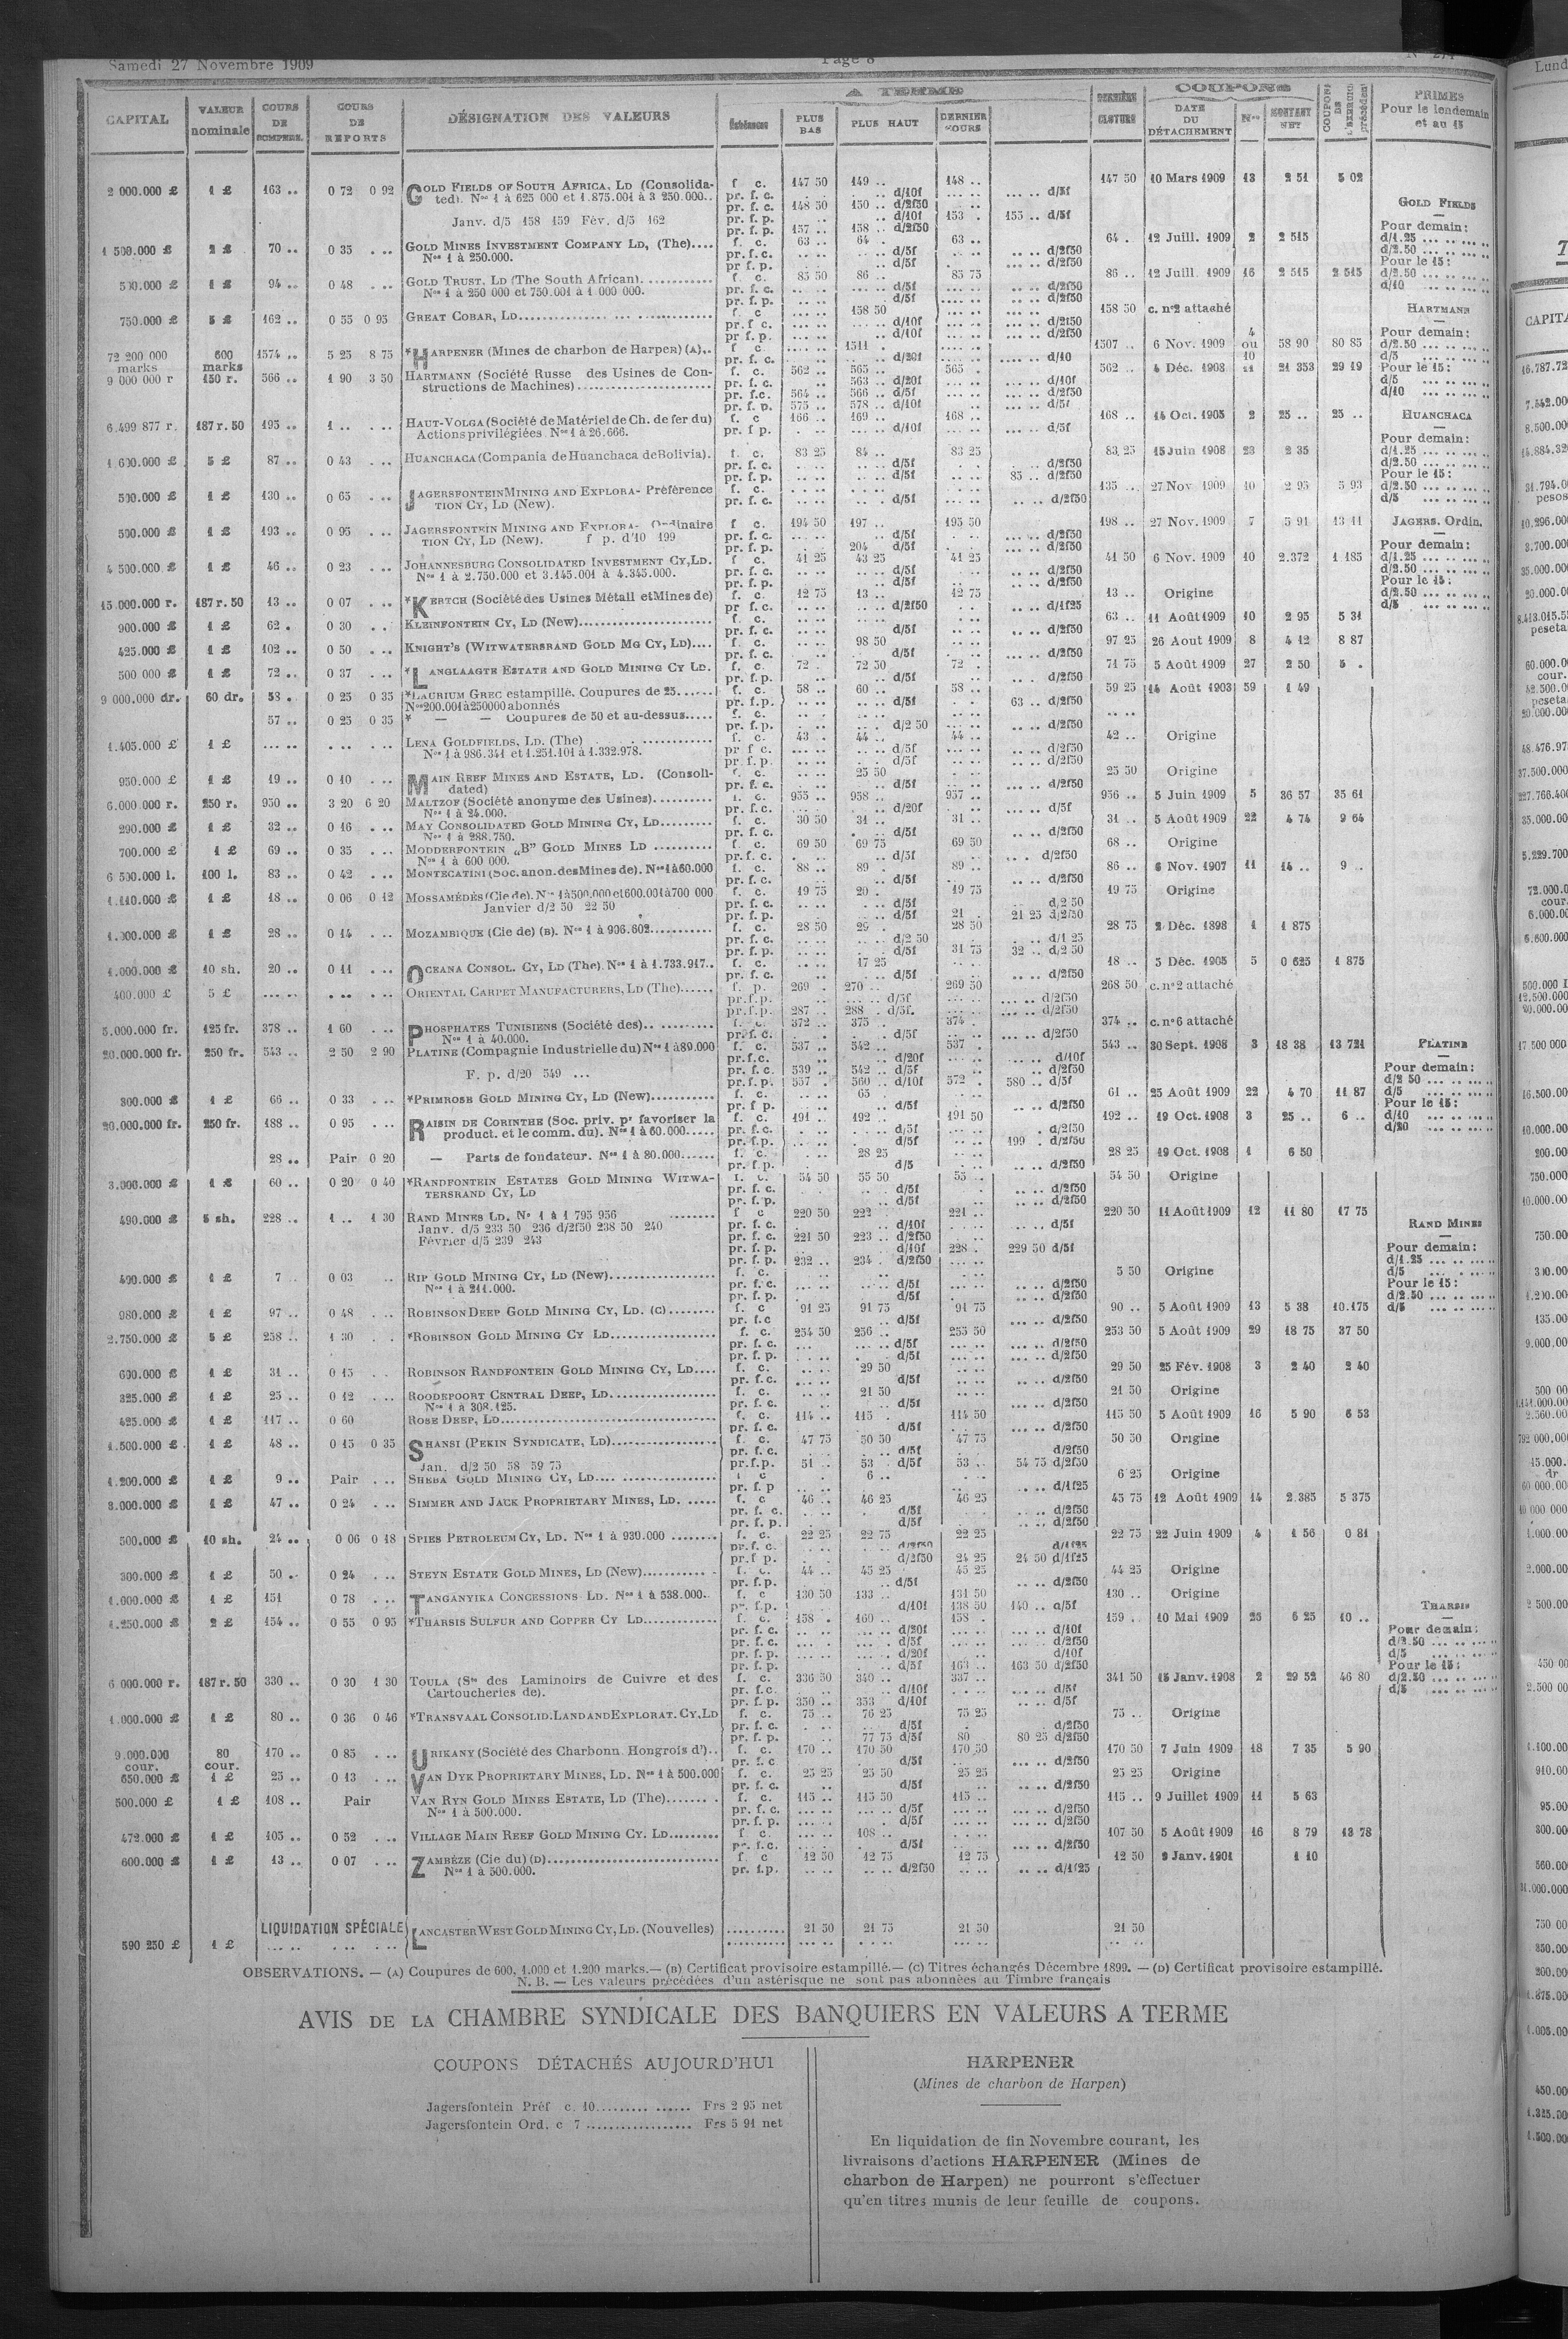 Samedi 27 Novembre 1909
Page 8
CAPITAL
VALEUR nominale
COURS DE COMPENS.
COURS DE REPORTS
DÉSIGNATION DES VALEURS
A TERME
Échéances
PLUS BAS
PLUS HAUT
DERNIER COURS
DERNIÈRE CLOTURE
COUPONS
DATE DU DÉTACHEMENT
Nos
MONTANT NET
COUPONS DE L'EXERCICE précédent
PRIMES Pour le lendemain et au 15
2 000.000 £ 1 £ 163 .. 0 72 0 92 GOLD FIELDS OF SOUTH AFRICA, LD (Consolida- f. c. 147 50 149 .. 148 .. 147 50 10 Mars 1909 13 2 51 5 02
ted). Nos 1 à 625 000 et 1.875.001 à 3 250.000.. pr. f. c. d/10f d/5f
pr. f. c. 148 50 150 .. d/2f50
Janv. d/5 158 159 Fév. d/5 162 pr. f. p. d/10f 153 . 155 .. d/5f
pr. f. p. 157 .. 158 .. d/2f50
1 500.000 £ 2 £ 70 .. 0 35 . .. GOLD MINES INVESTMENT COMPANY LD, (The).... f. c. 63 .. 64 . 63 .. 64 . 12 Juill. 1909 2 2 515
Nos 1 à 250.000. pr. f. c. d/5f d/2f50
pr f. p. d/5f d/2f50
500.000 £ 1 £ 94 .. 0 48 . .. GOLD TRUST, LD (The South African). f. c. 85 50 86 .. 85 75 86 .. 12 Juill. 1909 16 2 515 2 515
Nos 1 à 250 000 et 750.001 à 1 000 000. pr. f. c. d/5f d/2f50
pr. f. p. d/5f d/2f50
750.000 £ 5 £ 162 .. 0 55 0 95 GREAT COBAR, LD f. c 158 50 158 50 c. n°2 attaché
pr. f c. d/10f d/2f50
pr f. p. d/10f d/2f50
72 200 000 marks 600 marks 1574 .. 5 25 8 75 *HARPENER (Mines de charbon de Harpen) (A).. f c. 1511 . 1507 .. 6 Nov. 1909 4 ou 10 58 90 80 85
pr. f. c. d/20f d/10
9 000 000 r 150 r. 566 .. 1 90 3 50 HARTMANN (Société Russe des Usines de Con- f. c. 562 .. 565 .. 565 . 562 .. 4 Déc. 1908 21 353 29 19
structions de Machines) pr. f. c. 563 .. d/20f d/10f
pr. f.c. 564 .. 566 .. d/5f d/2f50
pr. f. p. 575 .. 578 .. d/10f d/5f
6.499 877 r. 187 r. 50 195 .. 1 .. . .. HAUT-VOLGA (Société de Matériel de Ch. de fer du) f. c 166 .. 169 .. 168 .. 168 .. 14 Oct. 1905 2 25 .. 25 ..
Actions privilégiées Nos 1 à 26.666. pr. f p. d/10f d/5f
1 600.000 £ 5 £ 87 .. 0 43 . .. HUANCHACA (Compania de Huanchaca de Bolivia). f. c. 83 25 84 .. 83 25 83 25 15 Juin 1908 23 2 35
pr. f. c. d/5f d/2f50
pr. f. p. d/5f 85 .. d/2f50
500.000 £ 1 £ 130 .. 0 65 . .. JAGERSFONTEIN MINING AND EXPLORA- Préférence f. c. 135 .. 27 Nov 1909 10 2 95 5 93
TION CY, LD (New). pr. f. c. d/5f d/2f50
500.000 £ 1 £ 193 .. 0 95 . .. JAGERSFONTEIN MINING AND EXPLORA- Ordinaire f c. 194 50 197 .. 195 50 198 .. 27 Nov. 1909 7 5 91 13 11
TION CY, LD (New). f p. d'10 199 pr. f. c. d/5f d/2f50
pr. f. p. 204 d/5f d/2f50
4 500.000 £ 1 £ 46 .. 0 23 . .. JOHANNESBURG CONSOLIDATED INVESTMENT CY, LD. f c. 41 25 43 25 41 25 41 50 6 Nov. 1909 10 2.372 1 185
Nos 1 à 2.750.000 et 3.145.001 à 4.345.000. pr. f. c. d/5f d/2f50
pr. f. p. d/5f d/2f50
15.000.000 r. 187 r. 50 13 .. 0 07 . .. *KERTCH (Société des Usines Métall et Mines de) f. c. 12 75 13 .. 12 75 13 .. Origine
pr f. c. d/2f50 d/1f25
900.000 £ 1 £ 62 . 0 30 . . KLEINFONTEIN CY, LD (New) f. c. 63 .. 11 Août 1909 10 2 95 5 31
pr. f. c. d/5f d/2f50
425.000 £ 1 £ 102 .. 0 50 . .. KNIGHT'S (WITWATERSRAND GOLD MG CY, LD).... f. c. 98 50 97 25 26 Aout 1909 8 4 12 8 87
pr. f. c. d/5f d/2f50
500 000 £ 1 £ 72 .. 0 37 . .. *LANGLAAGTE ESTATE AND GOLD MINING CY LD. f. c. 72 . 72 50 72 . 71 75 5 Août 1909 27 2 50 5 .
pr. f. p. d/5f d/2f50
9 000.000 dr. 60 dr. 58 . 0 25 0 35 *LAURIUM GREC estampillé. Coupures de 25 f. c. 58 .. 60 .. 58 .. 59 25 14 Août 1903 59 1 49
Nos 200.001 à 250000 abonnés pr. f.p. d/5f 63 .. d/2f50
57 .. 0 25 0 35 * — — Coupures de 50 et au-dessus f. c.
pr. f.p. d/2 50 d/2f50
1.405.000 £ 1 £ LENA GOLDFIELDS, LD. (The) f. c. 43 . 44 .. 44 .. 42 .. Origine
Nos 1 à 986.341 et 1.251.101 à 1.332.978. pr f c. d/5f d/2f50
pr. f. p. d/5f d/2f50
950.000 £ 1 £ 19 .. 0 10 . .. MAIN REEF MINES AND ESTATE, LD. (Consoli- f. c. 25 50 25 50 Origine
dated) pr. f. c. d/5f d/2f50
6.000.000 r. 250 r. 950 .. 3 20 6 20 MALTZOF (Société anonyme des Usines) f. c. 955 .. 958 .. 957 .. 956 .. 5 Juin 1909 5 36 57 35 61
Nos 1 à 24.000. pr. f.c. d/20f d/5f
290.000 £ 1 £ 32 .. 0 16 . .. MAY CONSOLIDATED GOLD MINING CY, LD f. c. 30 50 31 .. 31 .. 31 .. 5 Août 1909 22 4 74 9 64
Nos 1 à 288.750. pr. f. c. d/5f d/2f50
700.000 £ 1 £ 69 .. 0 35 . .. MODDERFONTEIN „B" GOLD MINES LD f. c. 69 50 69 75 69 50 68 .. Origine
Nos 1 à 600 000. pr. f. c. d/5f d/2f50
6 500.000 l. 100 l. 83 .. 0 42 . .. MONTECATINI (Soc. anon. des Mines de). Nos 1 à 60.000 f. c. 88 .. 89 . 89 .. 86 .. 6 Nov. 1907 11 14 .. 9 ..
pr. f. c. d/5f d/2f50
1.110.000 £ 1 £ 18 .. 0 06 0 12 MOSSAMÉDÈS (Cie de). Nos 1 à 500.000 et 600.001 à 700 000 f. c. 19 75 20 . 19 75 19 75 Origine
Janvier d/2 50 22 50 pr. f. c. d/5f d/2 50
pr. f. p. d/5f 21 . 21 25 d/2f50
1.000.000 £ 1 £ 28 .. 0 14 . .. MOZAMBIQUE (Cie de) (B). Nos 1 à 906.602 f. c. 28 50 29 . 28 50 28 75 2 Déc. 1898 1 1 875
pr. f. c. d/2 50 d/1 25
pr. f. p. d/5f 31 75 32 .. d/2 50
1.000.000 £ 10 sh. 20 .. 0 11 . .. OCEANA CONSOL. CY, LD (The). Nos 1 à 1.733.917.. f. c. 17 25 18 .. 5 Déc. 1905 5 0 625 1 875
pr. f. c. d/5f d/2f50
400.000 £ 5 £ ORIENTAL CARPET MANUFACTURERS, LD (The) f. p. 269 . 270 .. 269 50 268 50 c. n°2 attaché
pr. f. p. d/5f d/2f50
pr. f. p. 287 .. 288 . d/5f. d/2f50
5.000.000 fr. 125 fr. 378 .. 1 60 . .. PHOSPHATES TUNISIENS (Société des) f. c. 372 .. 375 . 374 . 374 .. c. n°6 attaché
Nos 1 à 40.000. pr. f. c. d/5f d/2f50
20.000.000 fr. 250 fr. 543 .. 2 50 2 90 PLATINE (Compagnie Industrielle du) Nos 1 à 89.000 f. c. 537 .. 542 .. 537 . 543 .. 30 Sept. 1908 3 18 38 13 721
pr. f. c. d/20f d/10f
pr. f. c. 539 .. 542 .. d/5f d/2f50
F. p. d/20 549 ... pr. f. p. 557 . 560 .. d/10f 572 . 580 .. d/5f
300.000 £ 1 £ 66 .. 0 33 . .. *PRIMROSE GOLD MINING CY, LD (New) f. c. 65 . 61 .. 25 Août 1909 22 4 70 11 87
pr. f p. d/5f d/2f50
20.000.000 fr. 250 fr. 188 .. 0 95 . .. RAISIN DE CORINTHE (Soc. priv. pr favoriser la f. c. 191 .. 192 .. 191 50 192 .. 19 Oct. 1908 3 25 .. 6 ..
product. et le comm. du). Nos 1 à 60.000 pr. f.c. d/5f d/2f50
pr. f.p. d/5f 199 . d/2f50
28 .. Pair 0 20 — Parts de fondateur. Nos 1 à 80.000 f. c. 28 25 28 25 19 Oct. 1908 1 6 50
pr. f. p. d/5 d/2f50
3.000.000 £ 1 £ 60 .. 0 20 0 40 *RANDFONTEIN ESTATES GOLD MINING WITWA- f. c. 54 50 55 50 55 . 54 50 Origine
TERSRAND CY, LD pr. f. c. d/5f d/2f50
pr. f. p. d/5f d/2f50
490.000 £ 5 sh. 228 .. 1 .. 1 30 RAND MINES LD. Nos 1 à 1 795 956 f c 220 50 222 221 .. 220 50 11 Août 1909 12 11 80 17 75
Janv. d/5 233 50 236 d/2f50 238 50 240 pr. f. c. d/10f d/5f
Février d/5 239 243 pr. f. c. 221 50 223 .. d/2f50
pr. f. p. d/10f 228 . 229 50 d/5f
pr. f. p. 232 .. 234 . d/2f50
400.000 £ 1 £ 7 . 0 03 .. RIP GOLD MINING CY, LD (New) f. c. 5 50 Origine
Nos 1 à 211.000. pr. f. c. d/5f d/2f50
pr. f. p. d/5f d/2f50
980.000 £ 1 £ 97 .. 0 48 . .. ROBINSON DEEP GOLD MINING CY, LD. (C) f. c 91 25 91 75 91 75 90 .. 5 Août 1909 13 5 38 10.175
pr. f.c d/5f d/2f50
2.750.000 £ 5 £ 258 .. 1 30 . .. *ROBINSON GOLD MINING CY LD f. c. 254 50 256 .. 255 50 253 50 5 Août 1909 29 18 75 37 50
pr. f. c. d/5f d/2f50
pr. f. p. d/5f d/2f50
600.000 £ 1 £ 31 .. 0 15 . . ROBINSON RANDFONTEIN GOLD MINING CY, LD.... f. c. 29 50 29 50 25 Fév. 1908 3 2 40 2 40
pr. f.c. d/5f d/2f50
325.000 £ 1 £ 25 .. 0 12 . .. ROODEPOORT CENTRAL DEEP, LD f. c. 21 50 21 50 Origine
Nos 1 à 308.125. pr. f. c. d/5f d/2f50
425.000 £ 1 £ 117 .. 0 60 ROSE DEEP, LD f. c. 114 .. 115 . 114 50 115 50 5 Août 1909 16 5 90 6 53
pr. f. c. d/5f d/2f50
1.500.000 £ 1 £ 48 .. 0 15 0 35 SHANSI (PEKIN SYNDICATE, LD) f. c. 47 75 50 50 47 75 50 50 Origine
pr. f. c. d/5f d/2f50
Jan. d/2 50 58 59 75 pr. f.p. 51 . 53 . d/5f 53 .. 54 75 d/2f50
1.200.000 £ 1 £ 9 .. Pair . .. SHEBA GOLD MINING CY, LD f c 6 .. 6 25 Origine
pr. f. p d/1f25
3.000.000 £ 1 £ 47 .. 0 24 . .. SIMMER AND JACK PROPRIETARY MINES, LD. f. c 46 .. 46 25 46 25 45 75 12 Août 1909 14 2.385 5 375
pr. f. c. d/5f d/2f50
pr. f. p. d/5f d/2f50
500.000 £ 10 sh. 24 .. 0 06 0 18 SPIES PETROLEUM CY, LD. Nos 1 à 930.000 f. c. 22 25 22 75 22 25 22 75 22 Juin 1909 4 1 56 0 81
pr. f. c. d/2f50 d/1f25
pr. f p. d/2f50 24 25 24 50 d/1f25
300.000 £ 1 £ 50 .. 0 24 . .. STEYN ESTATE GOLD MINES, LD (New) f. c. 44 .. 45 25 45 25 44 25 Origine
pr. f. p. d/5f d/2f50
1.000.000 £ 1 £ 151 0 78 . .. TANGANYIKA CONCESSIONS LD. Nos 1 à 538.000.. f. c 130 50 133 .. 131 50 130 .. Origine
pr. f.p. d/10f 138 50 140 .. d/5f
1.250.000 £ 2 £ 154 .. 0 55 0 95 *THARSIS SULFUR AND COPPER CY LD f. c. 158 . 160 .. 158 . 159 .. 10 Mai 1909 25 6 25 10 ..
pr. f. c. d/20f d/10f
pr. f. c. d/5f d/2f50
pr. f. p. d/20f d/10f
pr. f. p. d/5f 163 .. 163 50 d/2f50
6 000.000 r. 187 r. 50 330 .. 0 30 1 30 TOULA (Sté des Laminoirs de Cuivre et des f. c. 336 50 340 .. 337 .. 341 50 15 Janv. 1908 2 29 52 46 80
Cartoucheries de). pr. f.c. d/10f d/5f
pr. f. p. 350 .. 353 d/10f d/5f
1.000.000 £ 1 £ 80 .. 0 36 0 46 *TRANSVAAL CONSOLID. LAND AND EXPLORAT. CY, LD f. c. 75 .. 76 25 75 25 75 .. Origine
pr. f. c. d/5f d/2f50
pr. f. p. 77 75 d/5f 80 80 25 d/2f50
9.000.000 cour. 80 cour. 170 .. 0 85 . .. URIKANY (Société des Charbonn Hongrois d').. f. c. 170 .. 170 50 170 50 170 50 7 Juin 1909 18 7 35 5 90
pr. f. c d/5f d/2f50
650.000 £ 1 £ 25 .. 0 13 . .. VAN DYK PROPRIETARY MINES, LD. Nos 1 à 500.000 f. c. 25 25 25 50 25 25 25 25 Origine
pr. f. c. d/5f d/2f50
500.000 £ 1 £ 108 .. Pair VAN RYN GOLD MINES ESTATE, LD (The) f. c. 115 .. 115 50 115 .. 115 .. 9 Juillet 1909 11 5 63
Nos 1 à 500.000. pr. f. c. d/5f d/2f50
pr. f. p. d/5f d/2f50
472.000 £ 1 £ 105 .. 0 52 . .. VILLAGE MAIN REEF GOLD MINING CY. LD f c. 108 .. 107 50 5 Août 1909 16 8 79 13 78
pr. f.c. d/5f d/2f50
600.000 £ 1 £ 13 .. 0 07 . .. ZAMBÈZE (Cie du) (D) f. c 12 50 12 75 12 75 12 50 9 Janv. 1901 1 10
Nos 1 à 500.000. pr. f.p. d/2f50 d/1f25
LIQUIDATION SPÉCIALE
590 250 £ 1 £ LANCASTER WEST GOLD MINING CY, LD. (Nouvelles) 21 50 21 75 21 50 21 50
GOLD FIELDS
Pour demain:
d/1.25
d/2.50
Pour le 15:
d/2.50
d/10
HARTMANN
Pour demain:
d/2.50
d/5
Pour le 15:
d/5
d/10
HUANCHACA
Pour demain:
d/1.25
d/2.50
Pour le 15:
d/2.50
d/5
JAGERS. Ordin.
Pour demain:
d/1.25
d/2.50
Pour le 15:
d/2.50
d/5
PLATINE
Pour demain:
d/2 50
d/5
Pour le 15:
d/10
d/20
RAND MINES
Pour demain:
d/1.25
d/5
Pour le 15:
d/2.50
d/5
THARSIS
Pour demain:
d/2.50
d/5
Pour le 15:
d/2.50
d/5
OBSERVATIONS. — (A) Coupures de 600, 1.000 et 1.200 marks.— (B) Certificat provisoire estampillé.— (C) Titres échangés Décembre 1899. — (D) Certificat provisoire estampillé.
N. B. — Les valeurs précédées d'un astérisque ne sont pas abonnées au Timbre français
AVIS DE LA CHAMBRE SYNDICALE DES BANQUIERS EN VALEURS A TERME
COUPONS DÉTACHÉS AUJOURD'HUI
Jagersfontein Préf c. 10 Frs 2 95 net
Jagersfontein Ord. c 7 Frs 5 91 net
HARPENER
(Mines de charbon de Harpen)
En liquidation de fin Novembre courant, les
livraisons d'actions HARPENER (Mines de
charbon de Harpen) ne pourront s'effectuer
qu'en titres munis de leur feuille de coupons.
Lund